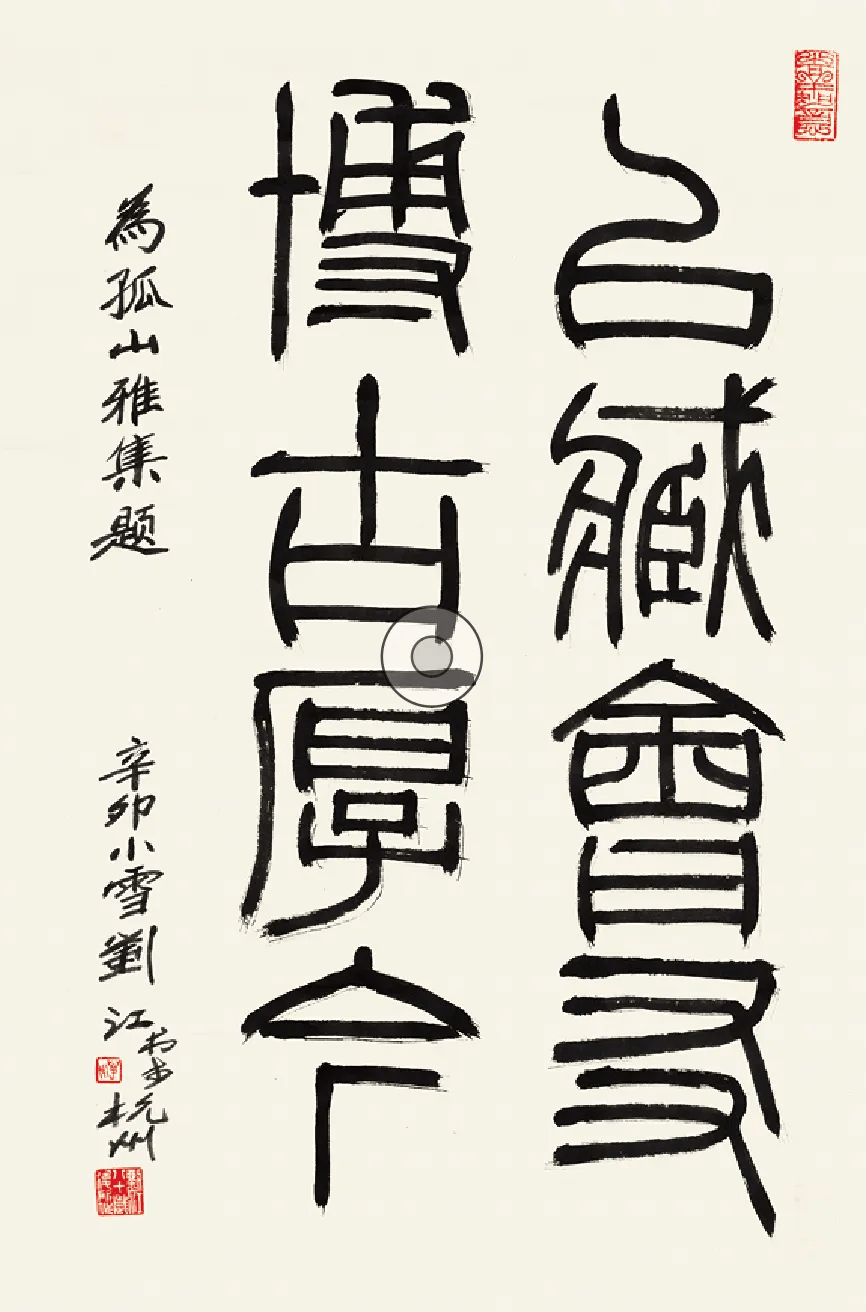 以臧會友
博古厚今
為孤山雅集题
辛卯小雪劉江书于杭州